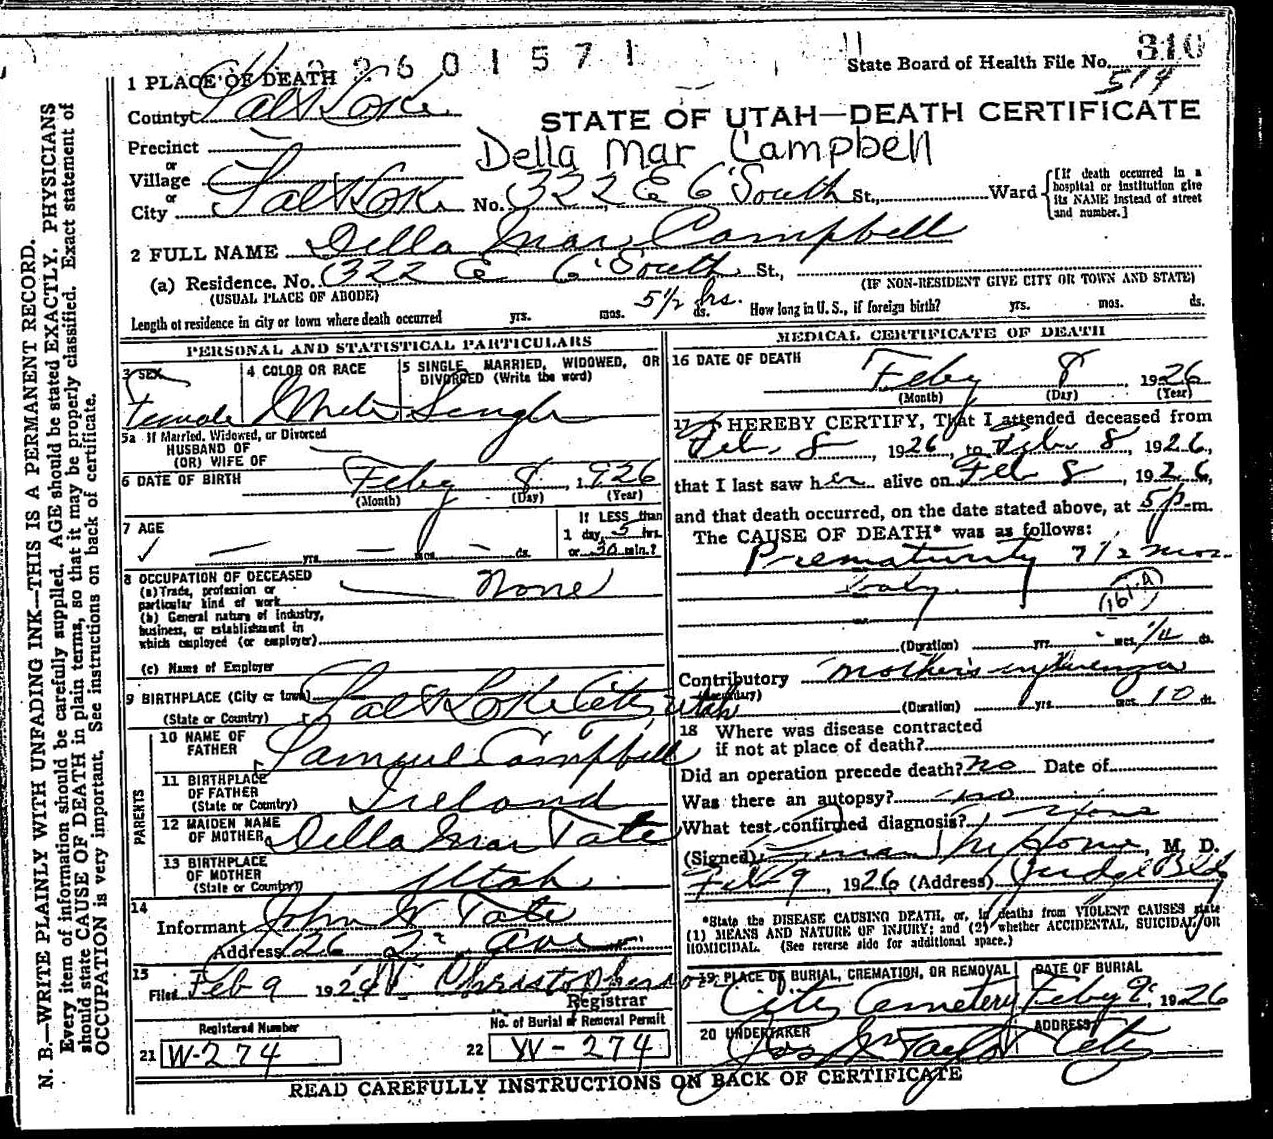 2601571
State Board of Health File No. 310
514
1 PLACE OF DEATH
County Salt Lake
STATE OF UTAH—DEATH CERTIFICATE
Precinct
Della Mar Campbell
or
Village
or
City Salt Lake No. 322 E 6 South St., Ward
[If death occurred in a hospital or institution give its NAME instead of street and number.]
2 FULL NAME Della Mar Campbell
(a) Residence. No. 322 E 6 South St.,
(USUAL PLACE OF ABODE) (IF NON-RESIDENT GIVE CITY OR TOWN AND STATE)
Length of residence in city or town where death occurred yrs. mos. 5 1/2 hrs. ds. How long in U. S., if foreign birth? yrs. mos. ds.
PERSONAL AND STATISTICAL PARTICULARS
3 SEX Female
4 COLOR OR RACE White
5 SINGLE, MARRIED, WIDOWED, OR DIVORCED (Write the word) Single
5a If Married, Widowed, or Divorced
HUSBAND OF
(OR) WIFE OF
6 DATE OF BIRTH Feby 8, 1926
(Month) (Day) (Year)
7 AGE yrs. mos. ds.
If LESS than
1 day, 5 hrs.
or 30 min.?
8 OCCUPATION OF DECEASED
(a) Trade, profession or
particular kind of work None
(b) General nature of industry,
business, or establishment in
which employed (or employer)
(c) Name of Employer
9 BIRTHPLACE (City or town) Salt Lake City, Utah
(State or Country)
PARENTS
10 NAME OF FATHER Samuel Campbell
11 BIRTHPLACE OF FATHER Ireland
(State or Country)
12 MAIDEN NAME OF MOTHER Della Mar Tate
13 BIRTHPLACE OF MOTHER Utah
(State or Country)
14
Informant John W Tate
Address 126 2nd Ave
15
Filed Feb 9 1926 Christopherson
Registrar
Registered Number
21 W-274
No. of Burial or Removal Permit
22 W-274
MEDICAL CERTIFICATE OF DEATH
16 DATE OF DEATH
Feby 8, 1926
(Month) (Day) (Year)
17 I HEREBY CERTIFY, That I attended deceased from
Feb. 8, 1926, to Feb. 8, 1926,
that I last saw her alive on Feb 8, 1926,
and that death occurred, on the date stated above, at 5 p.m.
The CAUSE OF DEATH* was as follows:
Prematurity 7 1/2 mos.
baby.
(161-A)
(Duration) yrs. mos. 1/4 ds.
Contributory mother's influenza
(Secondary)
(Duration) yrs. mos. 10 ds.
18 Where was disease contracted
if not at place of death?
Did an operation precede death? No Date of
Was there an autopsy? no
What test confirmed diagnosis? none
(Signed), M. D.
Feb 9, 1926 (Address) Judge Bldg
*State the DISEASE CAUSING DEATH, or, in deaths from VIOLENT CAUSES state
(1) MEANS AND NATURE OF INJURY; and (2) whether ACCIDENTAL, SUICIDAL, OR
HOMICIDAL. (See reverse side for additional space.)
19 PLACE OF BURIAL, CREMATION, OR REMOVAL
City Cemetery
DATE OF BURIAL
Feby 9, 1926
20 UNDERTAKER
Jos Wm Taylor
ADDRESS
City
READ CAREFULLY INSTRUCTIONS ON BACK OF CERTIFICATE
N. B.—WRITE PLAINLY WITH UNFADING INK—THIS IS A PERMANENT RECORD.
Every item of information should be carefully supplied. AGE should be stated EXACTLY. PHYSICIANS
should state CAUSE OF DEATH in plain terms, so that it may be properly classified. Exact statement of
OCCUPATION is very important. See instructions on back of certificate.